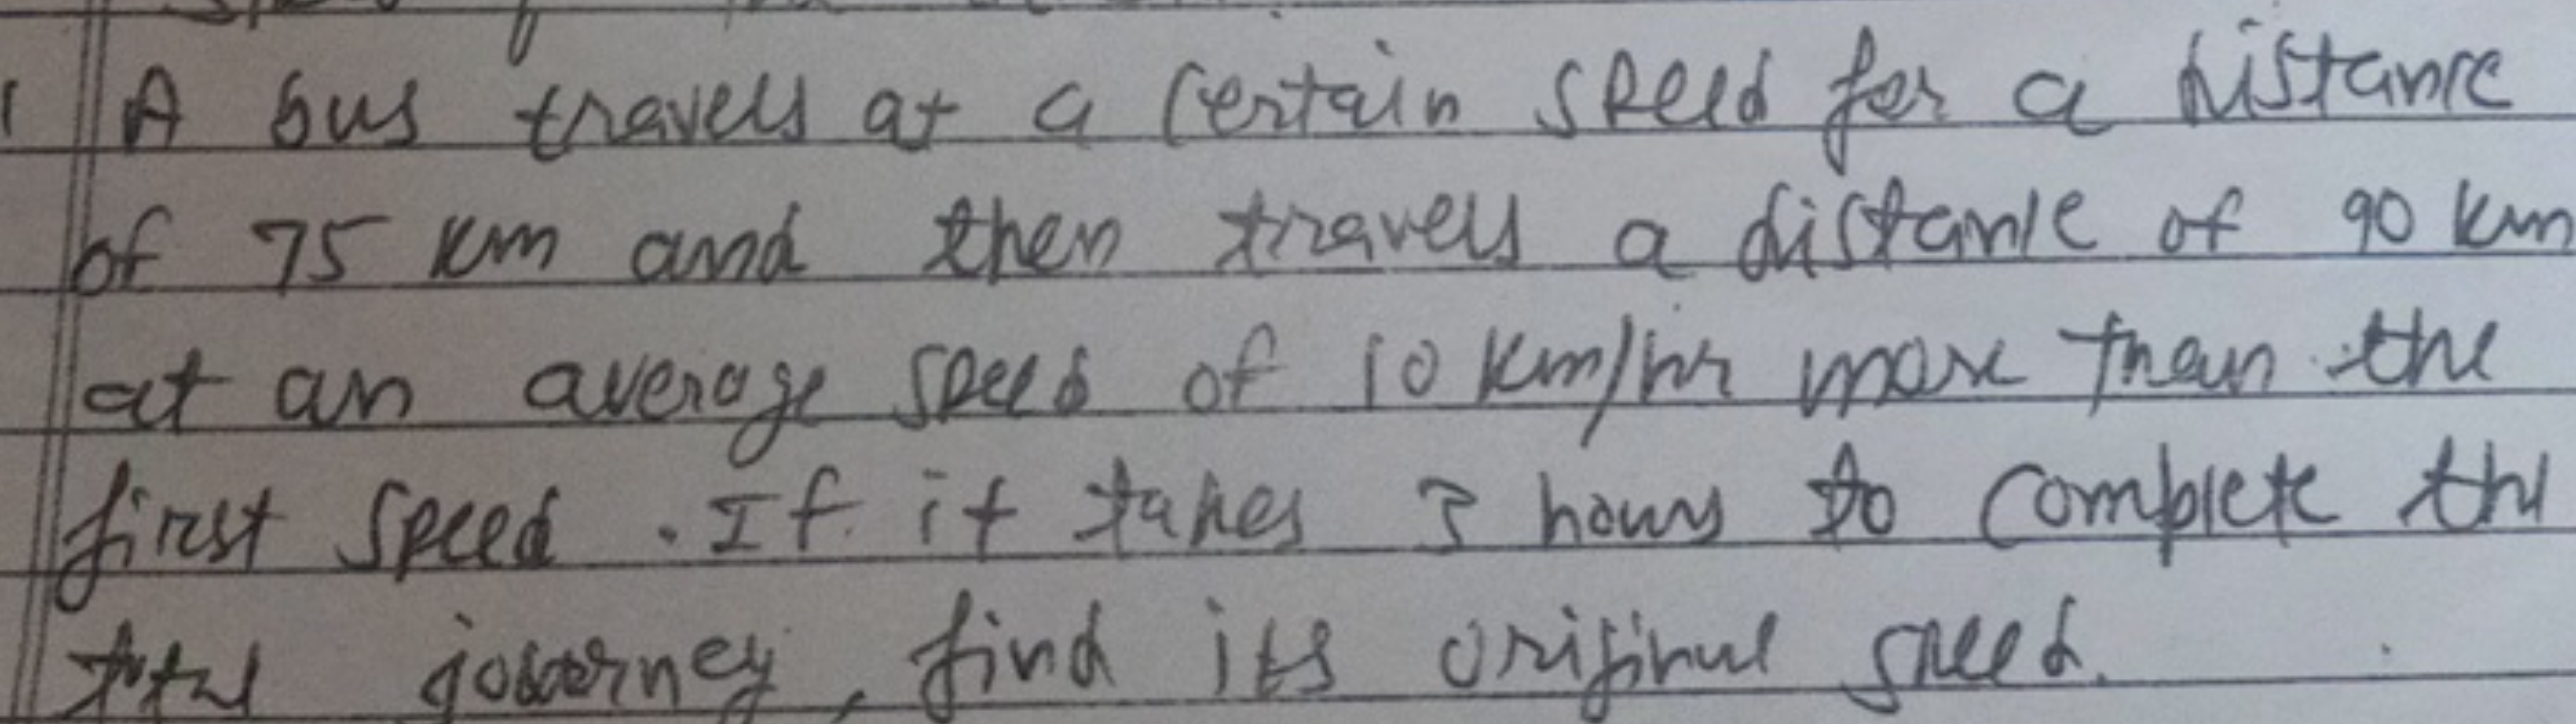 1 A bus travells at a certain speed for a distance
of 75 km and then travells a distance of 90 km
at an average speed of 10 km/hr more than the
first speed. If it takes 3 hours to complete the
total jouerney, find its original speed.